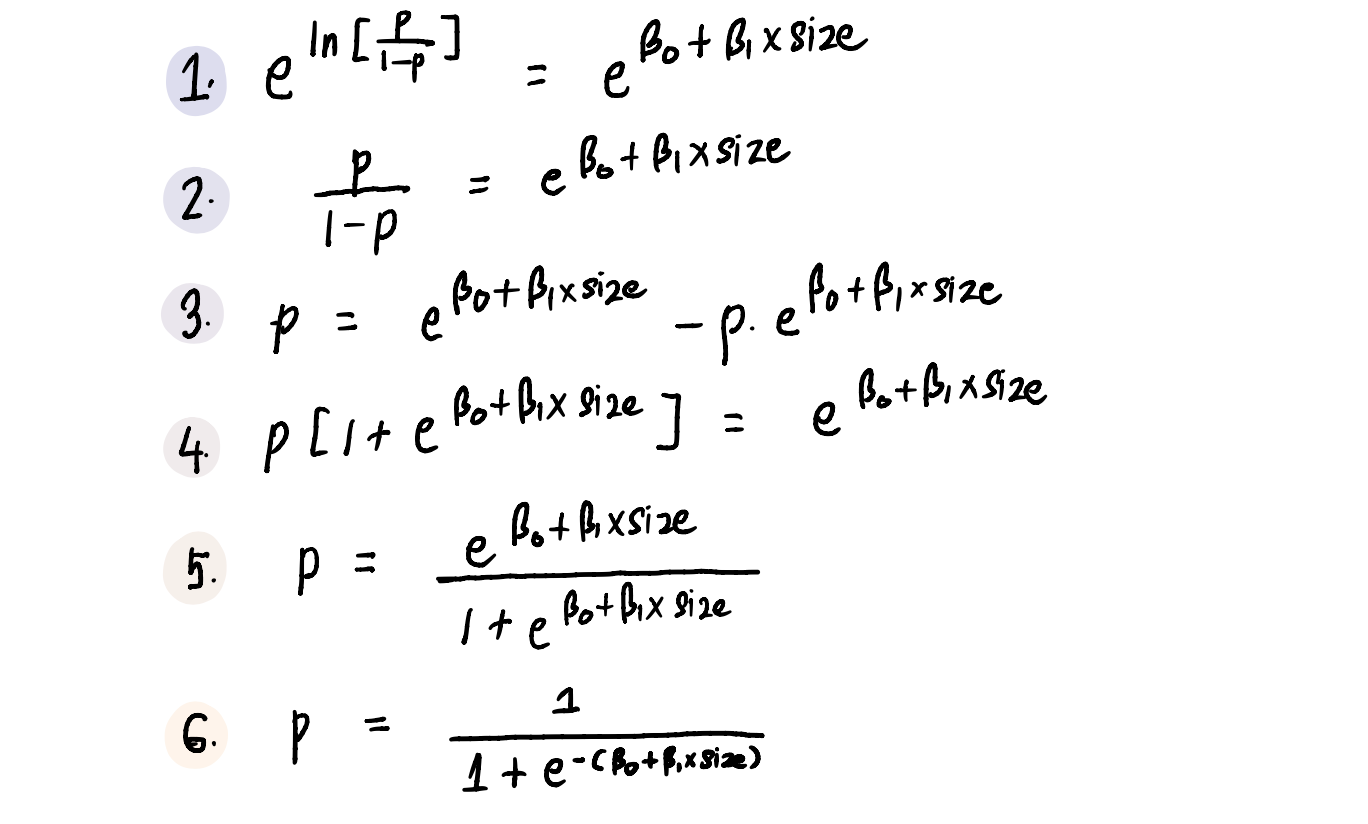 1. e^{ln[\frac{p}{1-p}]} = e^{β₀ + β₁ × size}
2. \frac{p}{1-p} = e^{β₀ + β₁ × size}
3. p = e^{β₀ + β₁ × size} - p. e^{β₀ + β₁ × size}
4. p [1 + e^{β₀ + β₁ × size}] = e^{β₀ + β₁ × size}
5. p = \frac{e^{β₀ + β₁ × size}}{1 + e^{β₀ + β₁ × size}}
6. p = \frac{1}{1 + e^{-(β₀ + β₁ × size)}}